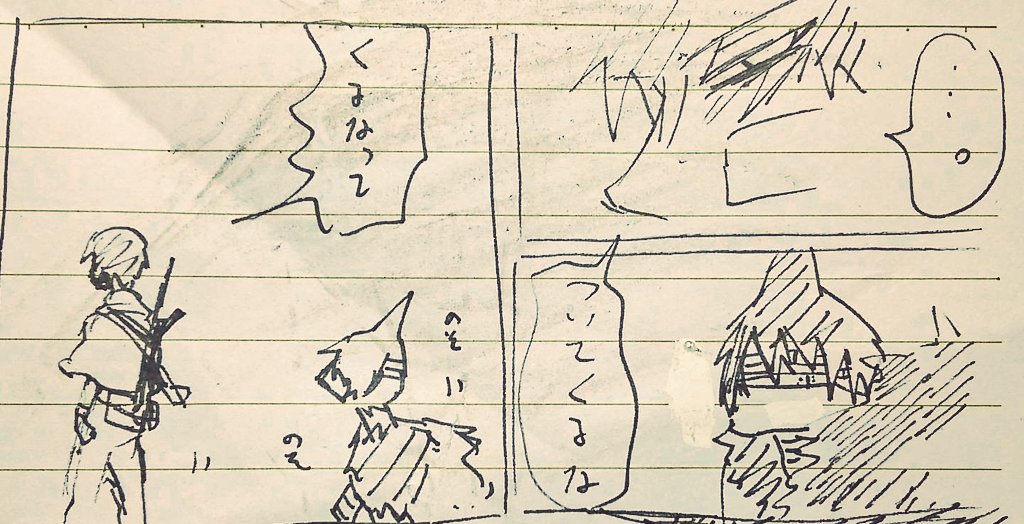 …。
ついてくるな
くるなって
のそ
のそ